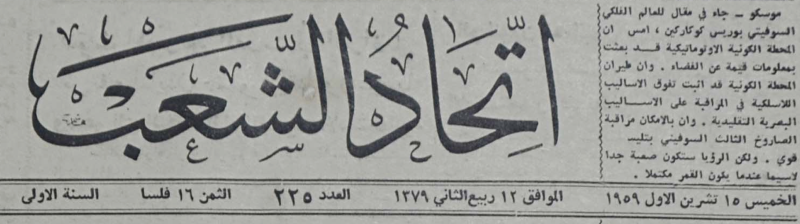 اتحاد الشعب
موسكو - جاء في مقال للعالم الفلكي
السوفيتي بوريس كوكاركين ، امس ان
المحطة الكونية الاوتوماتيكية قد بعثت
بمعلومات قيمة عن الفضاء . وان طيران
المحطة الكونية قد اثبت تفوق الاساليب
اللاسلكية في المراقبة على الاساليب
البصرية التقليدية . وان بالامكان مراقبة
الصاروخ الثالث السوفيتي بتلسـ
قوي . ولكن الرؤيا ستكون صعبة جدا
لاسيما عندما يكون القمر مكتملا .
الخميس ١٥ تشرين الاول ١٩٥٩ الموافق ١٢ ربيع الثاني ١٣٧٩ العدد ٢٢٥ الثمن ١٦ فلسا السنة الاولى